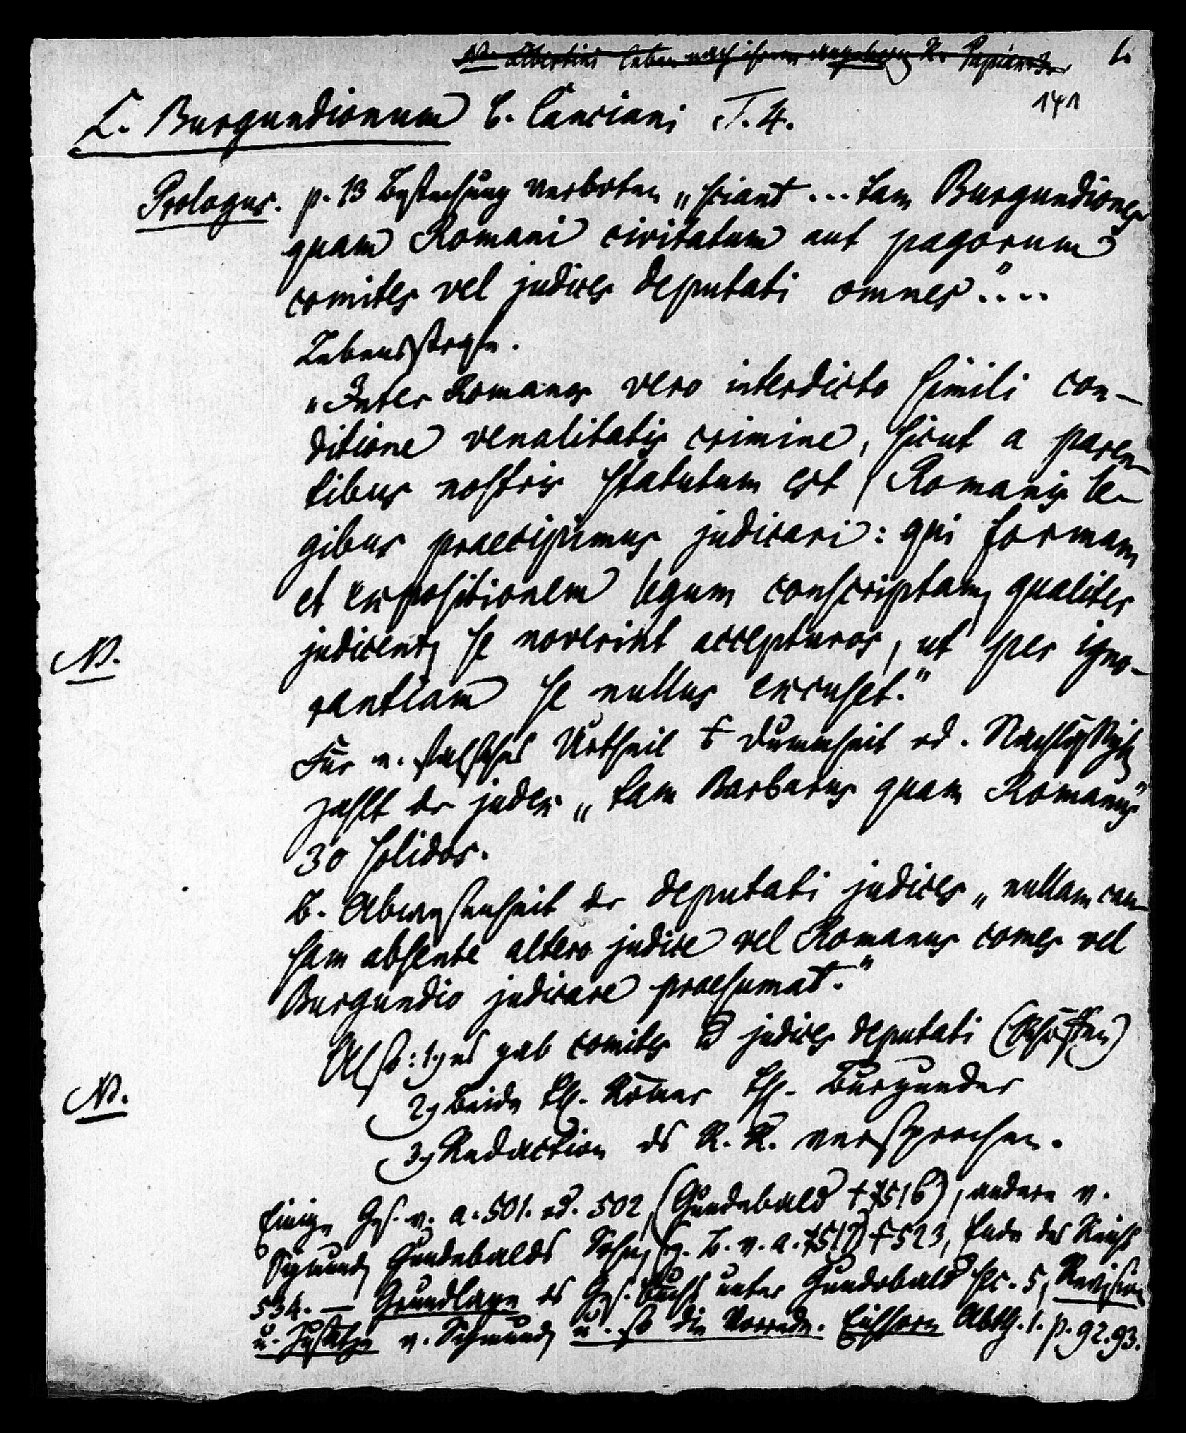 1.
141
L. Burgundionum b. Canciani T. 4.
Prologus. p. 13 Bestechung verboten „sciant ... tam Burgundiones
quam Romani civitatum aut pagorum
comites vel judices deputati omnes“....
Lebensstrafe.
„Inter Romanos vero interdicto simili con-
ditione venalitatis crimine, sicut a paren-
tibus nostris statutum est Romanis le-
gibus praecipimus judicari: qui formam
et expositionem legum conscriptam, qualiter
NB. judicent, se noverint accepturos, ut per igno-
rantiam se nullus excuset.“
Für e. falsches Urtheil Dummheit od. Nachlässigk
zahlt der judex „tam Barbarus quam Romanus“
30 solidos.
b. Abwesenheit der deputati judices „nullam cau-
sam absente altero judice vel Romanus comes vel
Burgundio judicare praesumat.“
Also: 1) es gab comites u judices deputati (Schöffen)
NB. 2) Beide th. Römer th. Burgunder
3) Redaction des R. R. versprochen.
Einige Ges. v. a. 501. od. 502, (Gundebald † 516), andere v.
Sigmund, Gundebalds Sohn, (z. B. v. a. 517) † 523, Ende des Reichs
534. — Grundlage des Ges. Buchs unter Gundobald sec. 5, Revision
u. Zusätze v. Sigmund, u. so die Vorrede. Eichhorn Abth. 1. p. 92. 93.